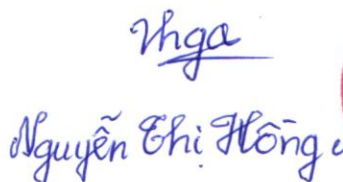 Nguyễn Thị Hồng